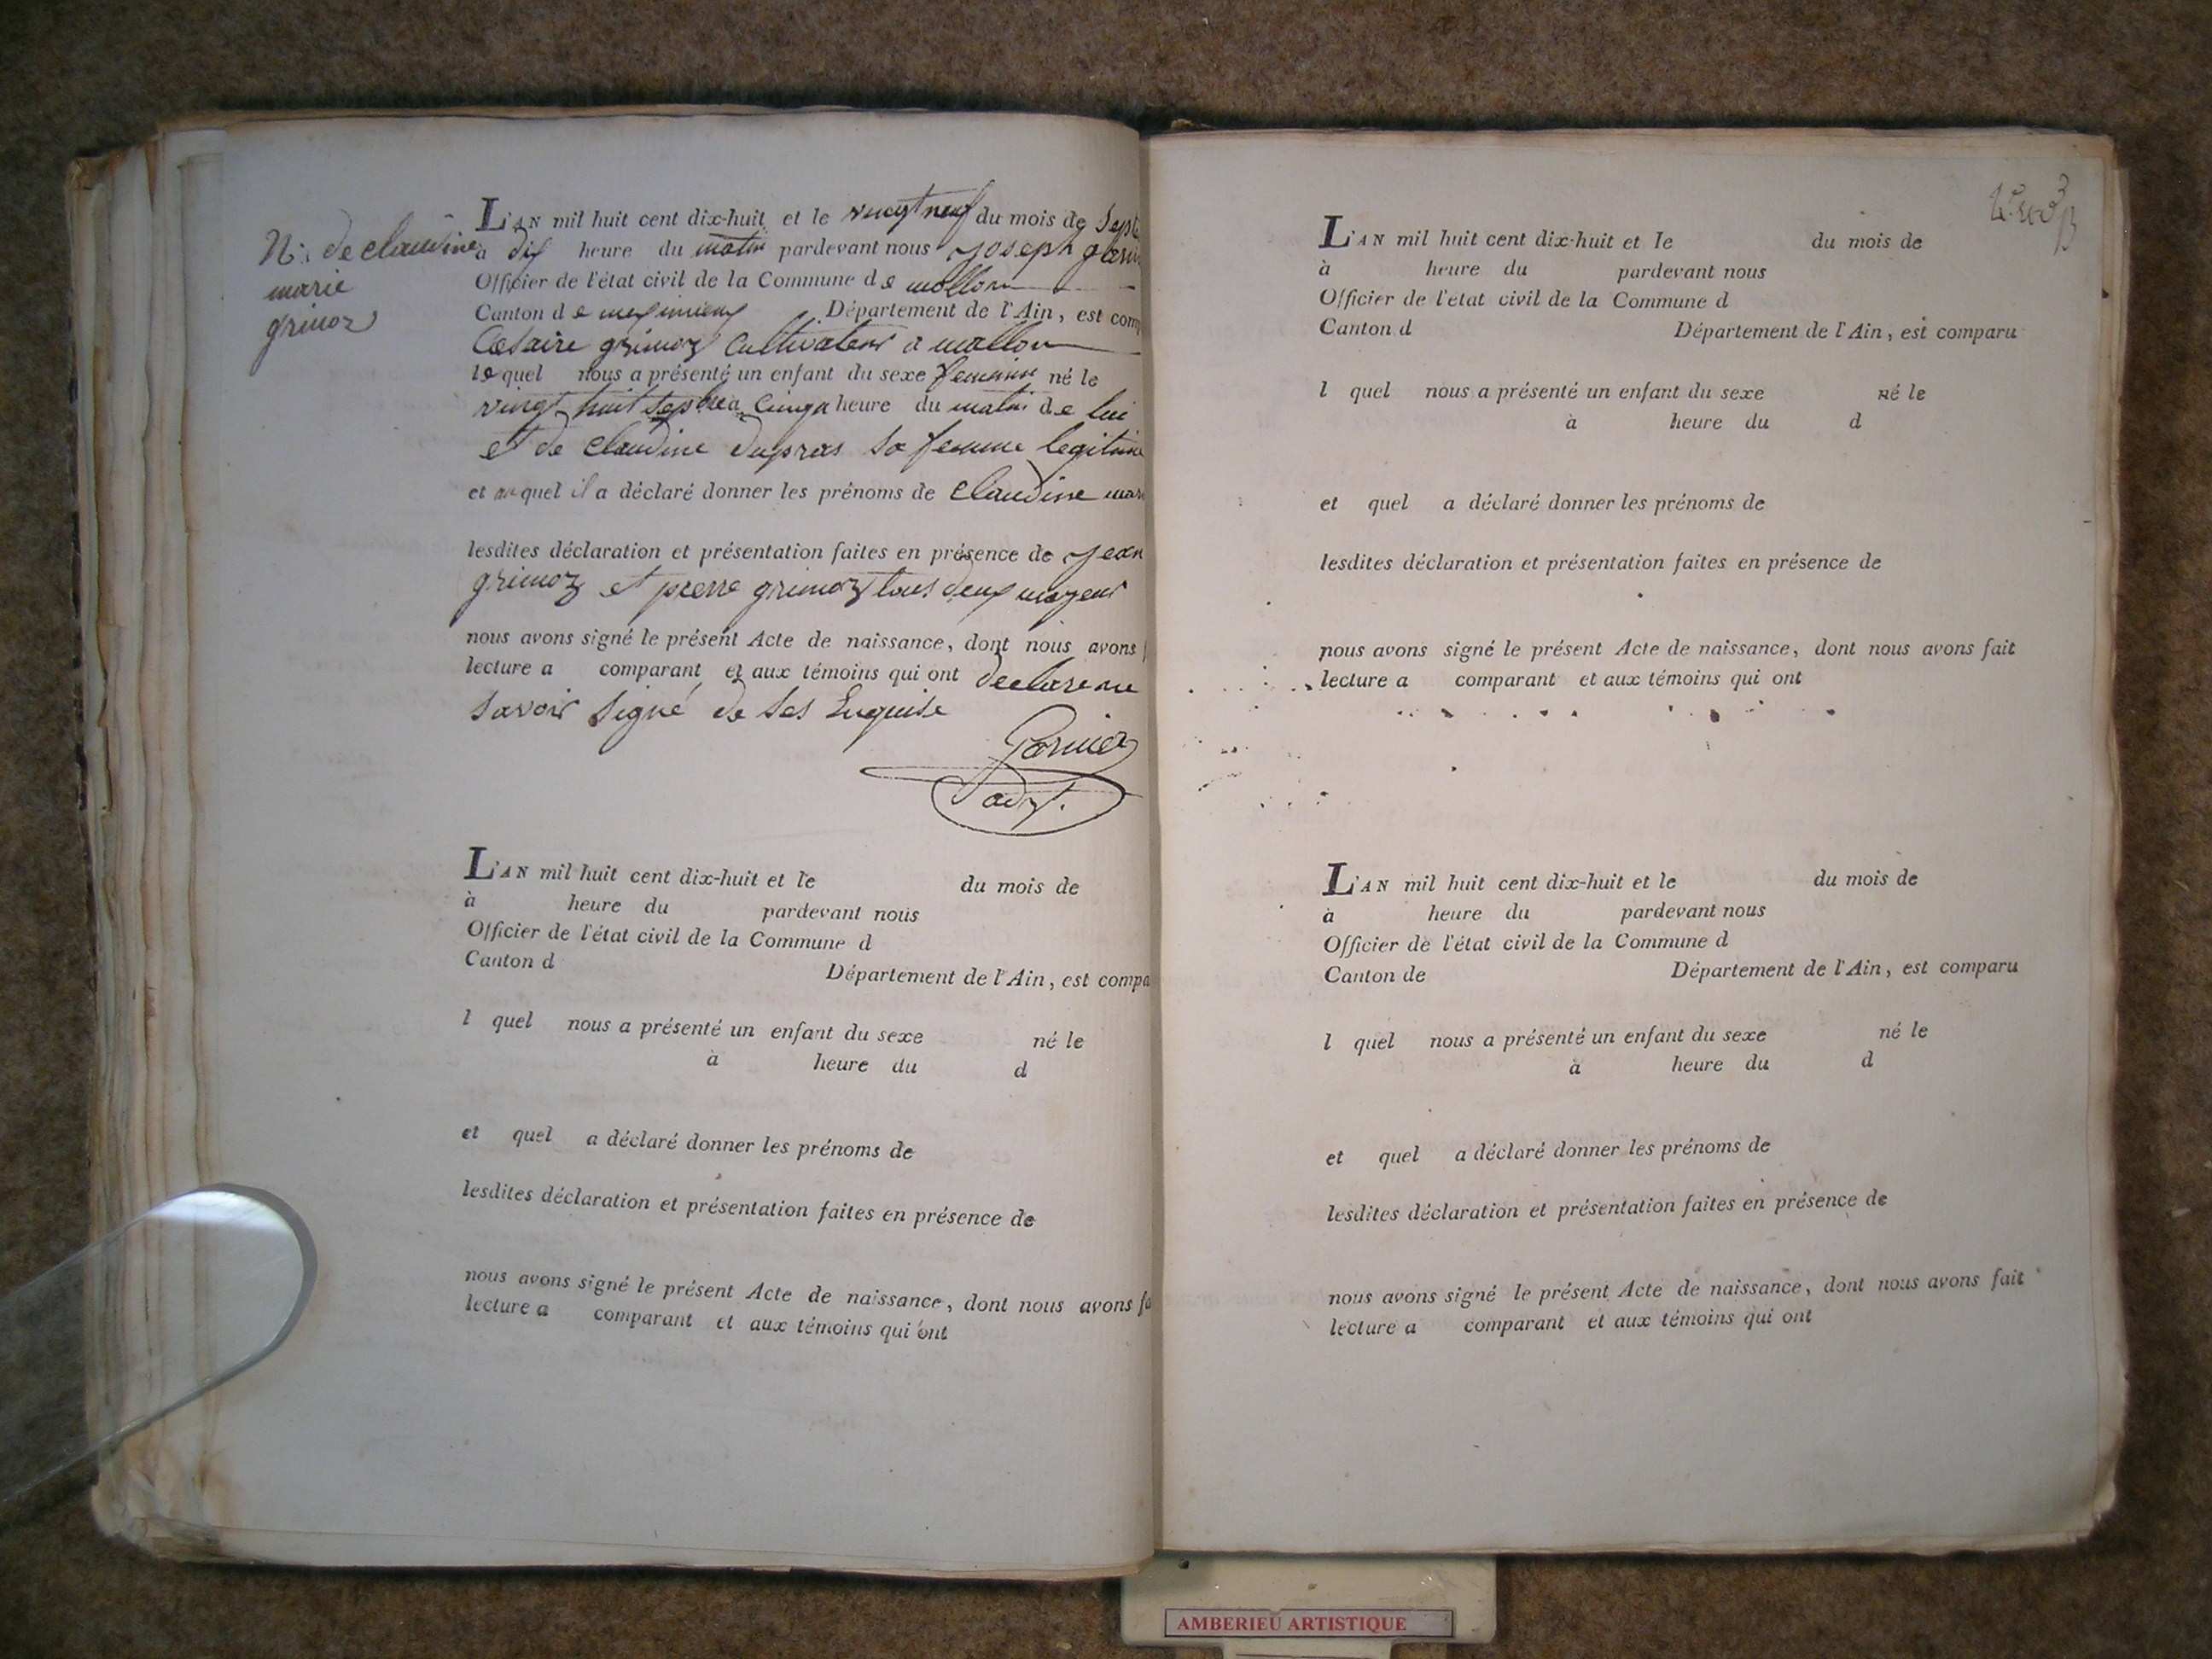 N: de claudine
marie
grimoz
L'AN mil huit cent dix-huit et le vingt neuf du mois de Septe
a dix heure du matin pardevant nous Joseph
Officier de l'état civil de la Commune de mollon
Canton de meximieux Département de l'Ain, est comp
Cesaire grimoz Cultivateur a mollon
lequel nous a présenté un enfant du sexe feminin né le
vingt huit a Cinq heure du matin de lui
et de claudine dupras sa femme legitime
et auquel il a déclaré donner les prénoms de Claudine mar
lesdites déclaration et présentation faites en présence de Jean
grimoz et pierre grimoz tous deux majeur
nous avons signé le présent Acte de naissance, dont nous avons
lecture a comparant et aux témoins qui ont declare ne
savoir signé de ses Enquise
Garnier
adj.
L'AN mil huit cent dix-huit et le du mois de
à heure du pardevant nous
Officier de l'état civil de la Commune d
Canton d Département de l'Ain, est compa
l quel nous a présenté un enfant du sexe né le
à heure du d
et quel a déclaré donner les prénoms de
lesdites déclaration et présentation faites en présence de
nous avons signé le présent Acte de naissance, dont nous avons fa
lecture a comparant et aux témoins qui ont
L'AN mil huit cent dix-huit et le du mois de
à heure du pardevant nous
Officier de l'état civil de la Commune d
Canton d Département de l'Ain, est comparu
l quel nous a présenté un enfant du sexe né le
à heure du d
et quel a déclaré donner les prénoms de
lesdites déclaration et présentation faites en présence de
nous avons signé le présent Acte de naissance, dont nous avons fait
lecture a comparant et aux témoins qui ont
L'AN mil huit cent dix-huit et le du mois de
à heure du pardevant nous
Officier de l'état civil de la Commune d
Canton de Département de l'Ain, est comparu
l quel nous a présenté un enfant du sexe né le
à heure du d
et quel a déclaré donner les prénoms de
lesdites déclaration et présentation faites en présence de
nous avons signé le présent Acte de naissance, dont nous avons fait
lecture a comparant et aux témoins qui ont
AMBERIEU ARTISTIQUE